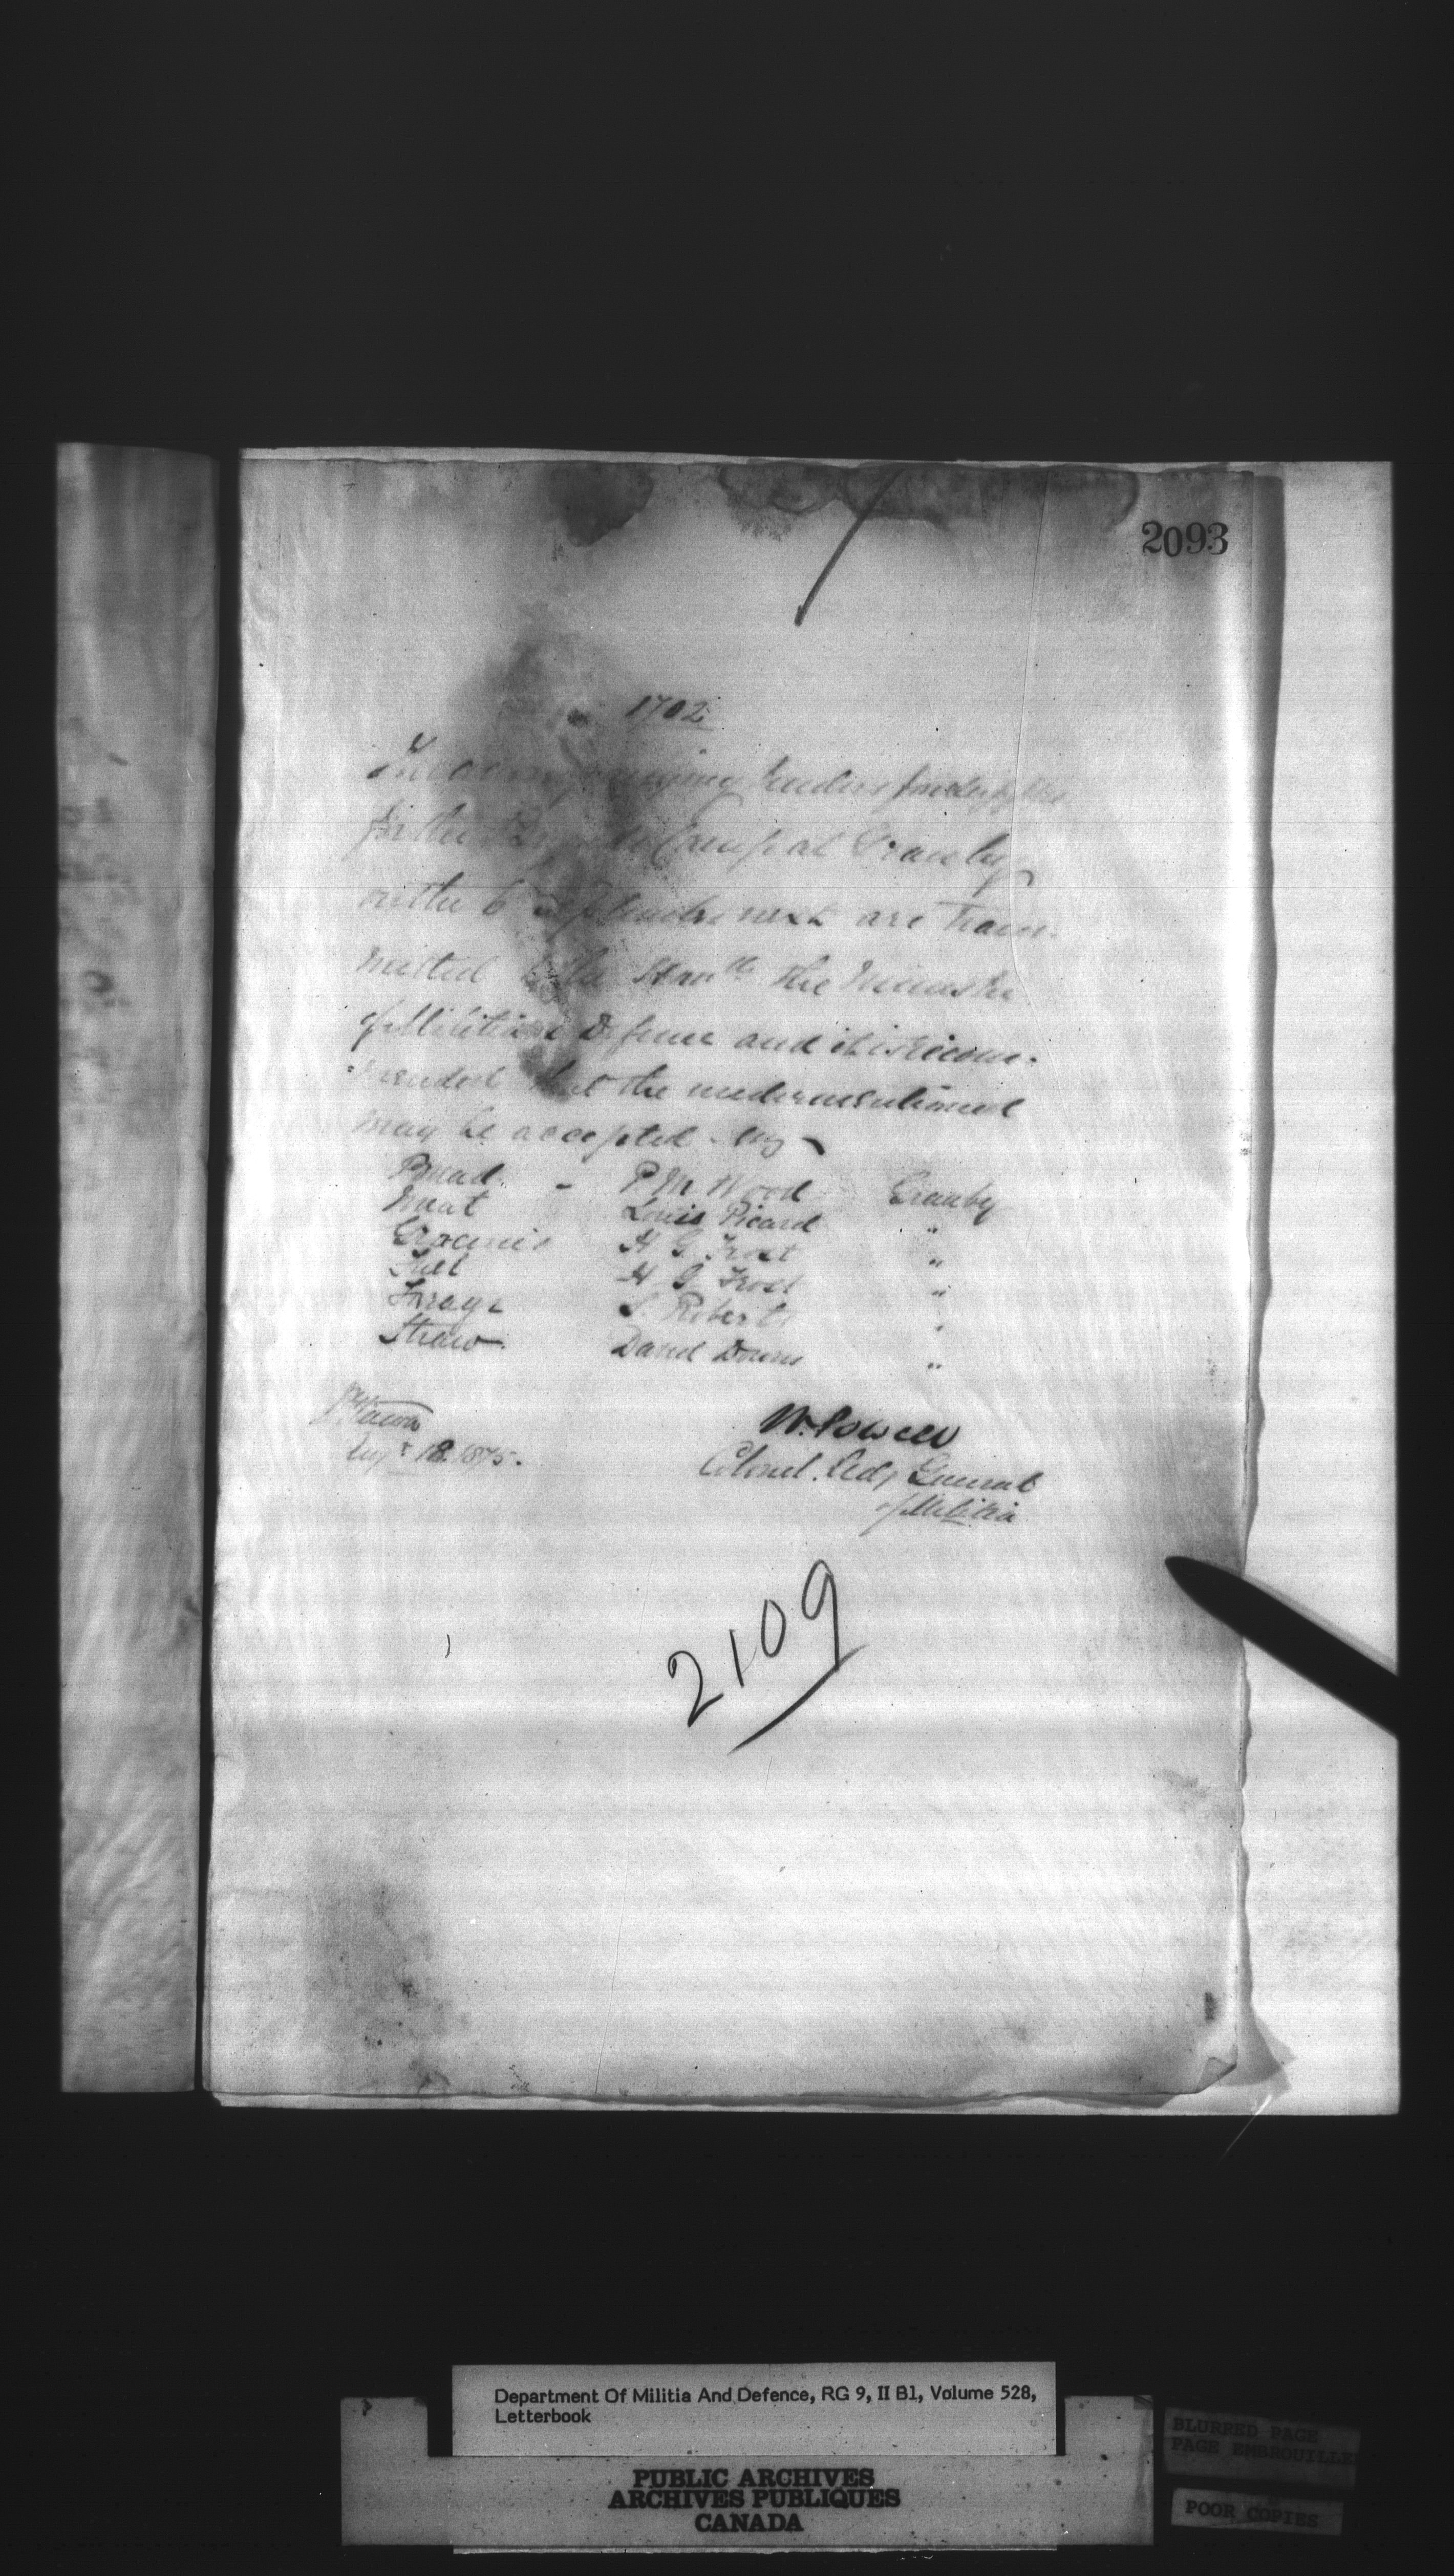 2093
1702
The accompanying tenders for supplies
for the Brigade Camp at Granby
on the 6 September next are trans-
mitted to the Honble the Minister
of Militia & Defence and it is recom-
mended that the undermentioned
may be accepted. viz
Bread. - P M Wood Granby
Meat Louis Picard "
Groceries H G Frost "
Fuel H G Frost "
Forage S. Roberts "
Straw David Downs "
Ottawa W. Powell
Augt 18. 1875. Colonel. Adj General
of Militia
2109
Department Of Militia And Defence, RG 9, II B1, Volume 528,
Letterbook
PUBLIC ARCHIVES
ARCHIVES PUBLIQUES
CANADA
BLURRED PAGE
PAGE EMBROUILLEE
POOR COPIES